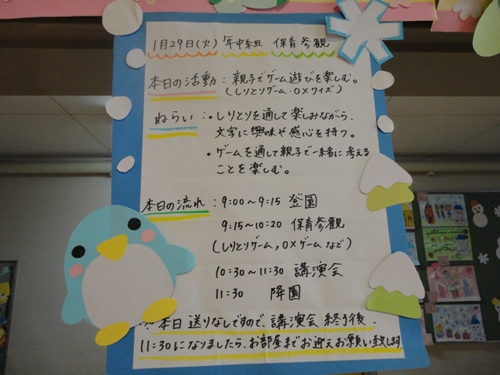 1月29日(火) 年中組 保育参観
本日の活動：親子でゲーム遊びを楽しむ。
(しりとりゲーム・○×クイズ)
ねらい：・しりとりを通して楽しみながら、
文字に興味や感心を持つ。
・ゲームを通して親子で一緒に考える
ことを楽しむ。
本日の流れ：9:00～9:15 登園
9:15～10:20 保育参観
(しりとりゲーム,○×ゲームなど)
10:30～11:30 講演会
11:30 降園
※本日送りなしですので、講演会終了後、
11:30になりましたら、お部屋までお迎えお願い致します